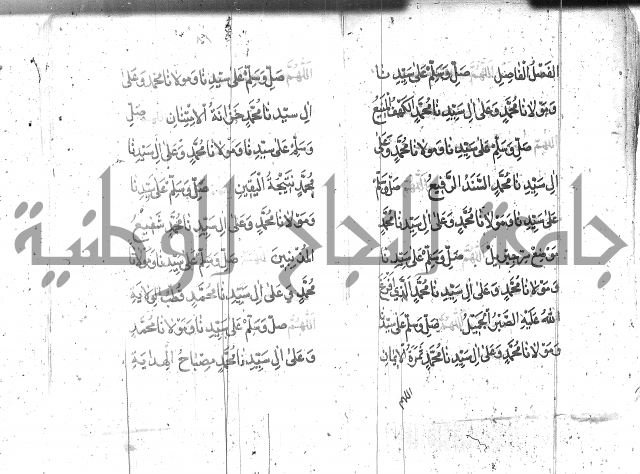 الفَضْلُ الفَاصِلِ اللَّهُمَّ صَلِّ وَسَلِّمْ عَلَى سَيِّدِنَا
وَمَوْلَانَا مُحَمَّدٍ وَعَلَى الِ سَيِّدِنَا مُحَمَّدٍ الكَهْفُ المَنِيعُ
اللَّهُمَّ صَلِّ وَسَلِّمْ عَلَى سَيِّدِنَا وَمَوْلَانَا مُحَمَّدٍ وَعَلَى
الِ سَيِّدِنَا مُحَمَّدٍ السَّنَدُ الرَّفِيعُ اللَّهُمَّ صَلِّ وَسَلِّمْ
عَلَى سَيِّدِنَا وَمَوْلَانَا مُحَمَّدٍ وَعَلَى الِ سَيِّدِنَا مُحَمَّدٍ
اللَّهُمَّ صَلِّ وَسَلِّمْ عَلَى سَيِّدِنَا
وَمَوْلَانَا مُحَمَّدٍ وَعَلَى الِ سَيِّدِنَا مُحَمَّدٍ الَّذِي
اللهُ عَلَيْهِ الصَّبْرُ الجَمِيلُ اللَّهُمَّ صَلِّ وَسَلِّمْ عَلَى سَيِّدِنَا
وَمَوْلَانَا مُحَمَّدٍ وَعَلَى الِ سَيِّدِنَا مُحَمَّدٍ ثَمَرَةُ الْاِيمَانِ
اللَّهُمَّ صَلِّ وَسَلِّمْ عَلَى سَيِّدِنَا وَمَوْلَانَا مُحَمَّدٍ وَعَلَى
الِ سَيِّدِنَا مُحَمَّدٍ خَزَانَةُ الْاِمْتِنَانِ صَلِّ
وَسَلِّمْ عَلَى سَيِّدِنَا وَمَوْلَانَا مُحَمَّدٍ وَعَلَى الِ سَيِّدِنَا
مُحَمَّدٍ نَتِيجَةُ الْيَقِينِ صَلِّ وَسَلِّمْ عَلَى سَيِّدِنَا
وَمَوْلَانَا مُحَمَّدٍ وَعَلَى الِ سَيِّدِنَا مُحَمَّدٍ شَفِيعُ
المُذْنِبِينَ صَلِّ وَسَلِّمْ عَلَى سَيِّدِنَا وَمَوْلَانَا
مُحَمَّدٍ وَعَلَى الِ سَيِّدِنَا مُحَمَّدٍ
اللَّهُمَّ صَلِّ وَسَلِّمْ عَلَى سَيِّدِنَا وَمَوْلَانَا مُحَمَّدٍ
وَعَلَى الِ سَيِّدِنَا مُحَمَّدٍ مِصْبَاحُ الْهِدَايَةِ
جامعة النجاح الوطنية